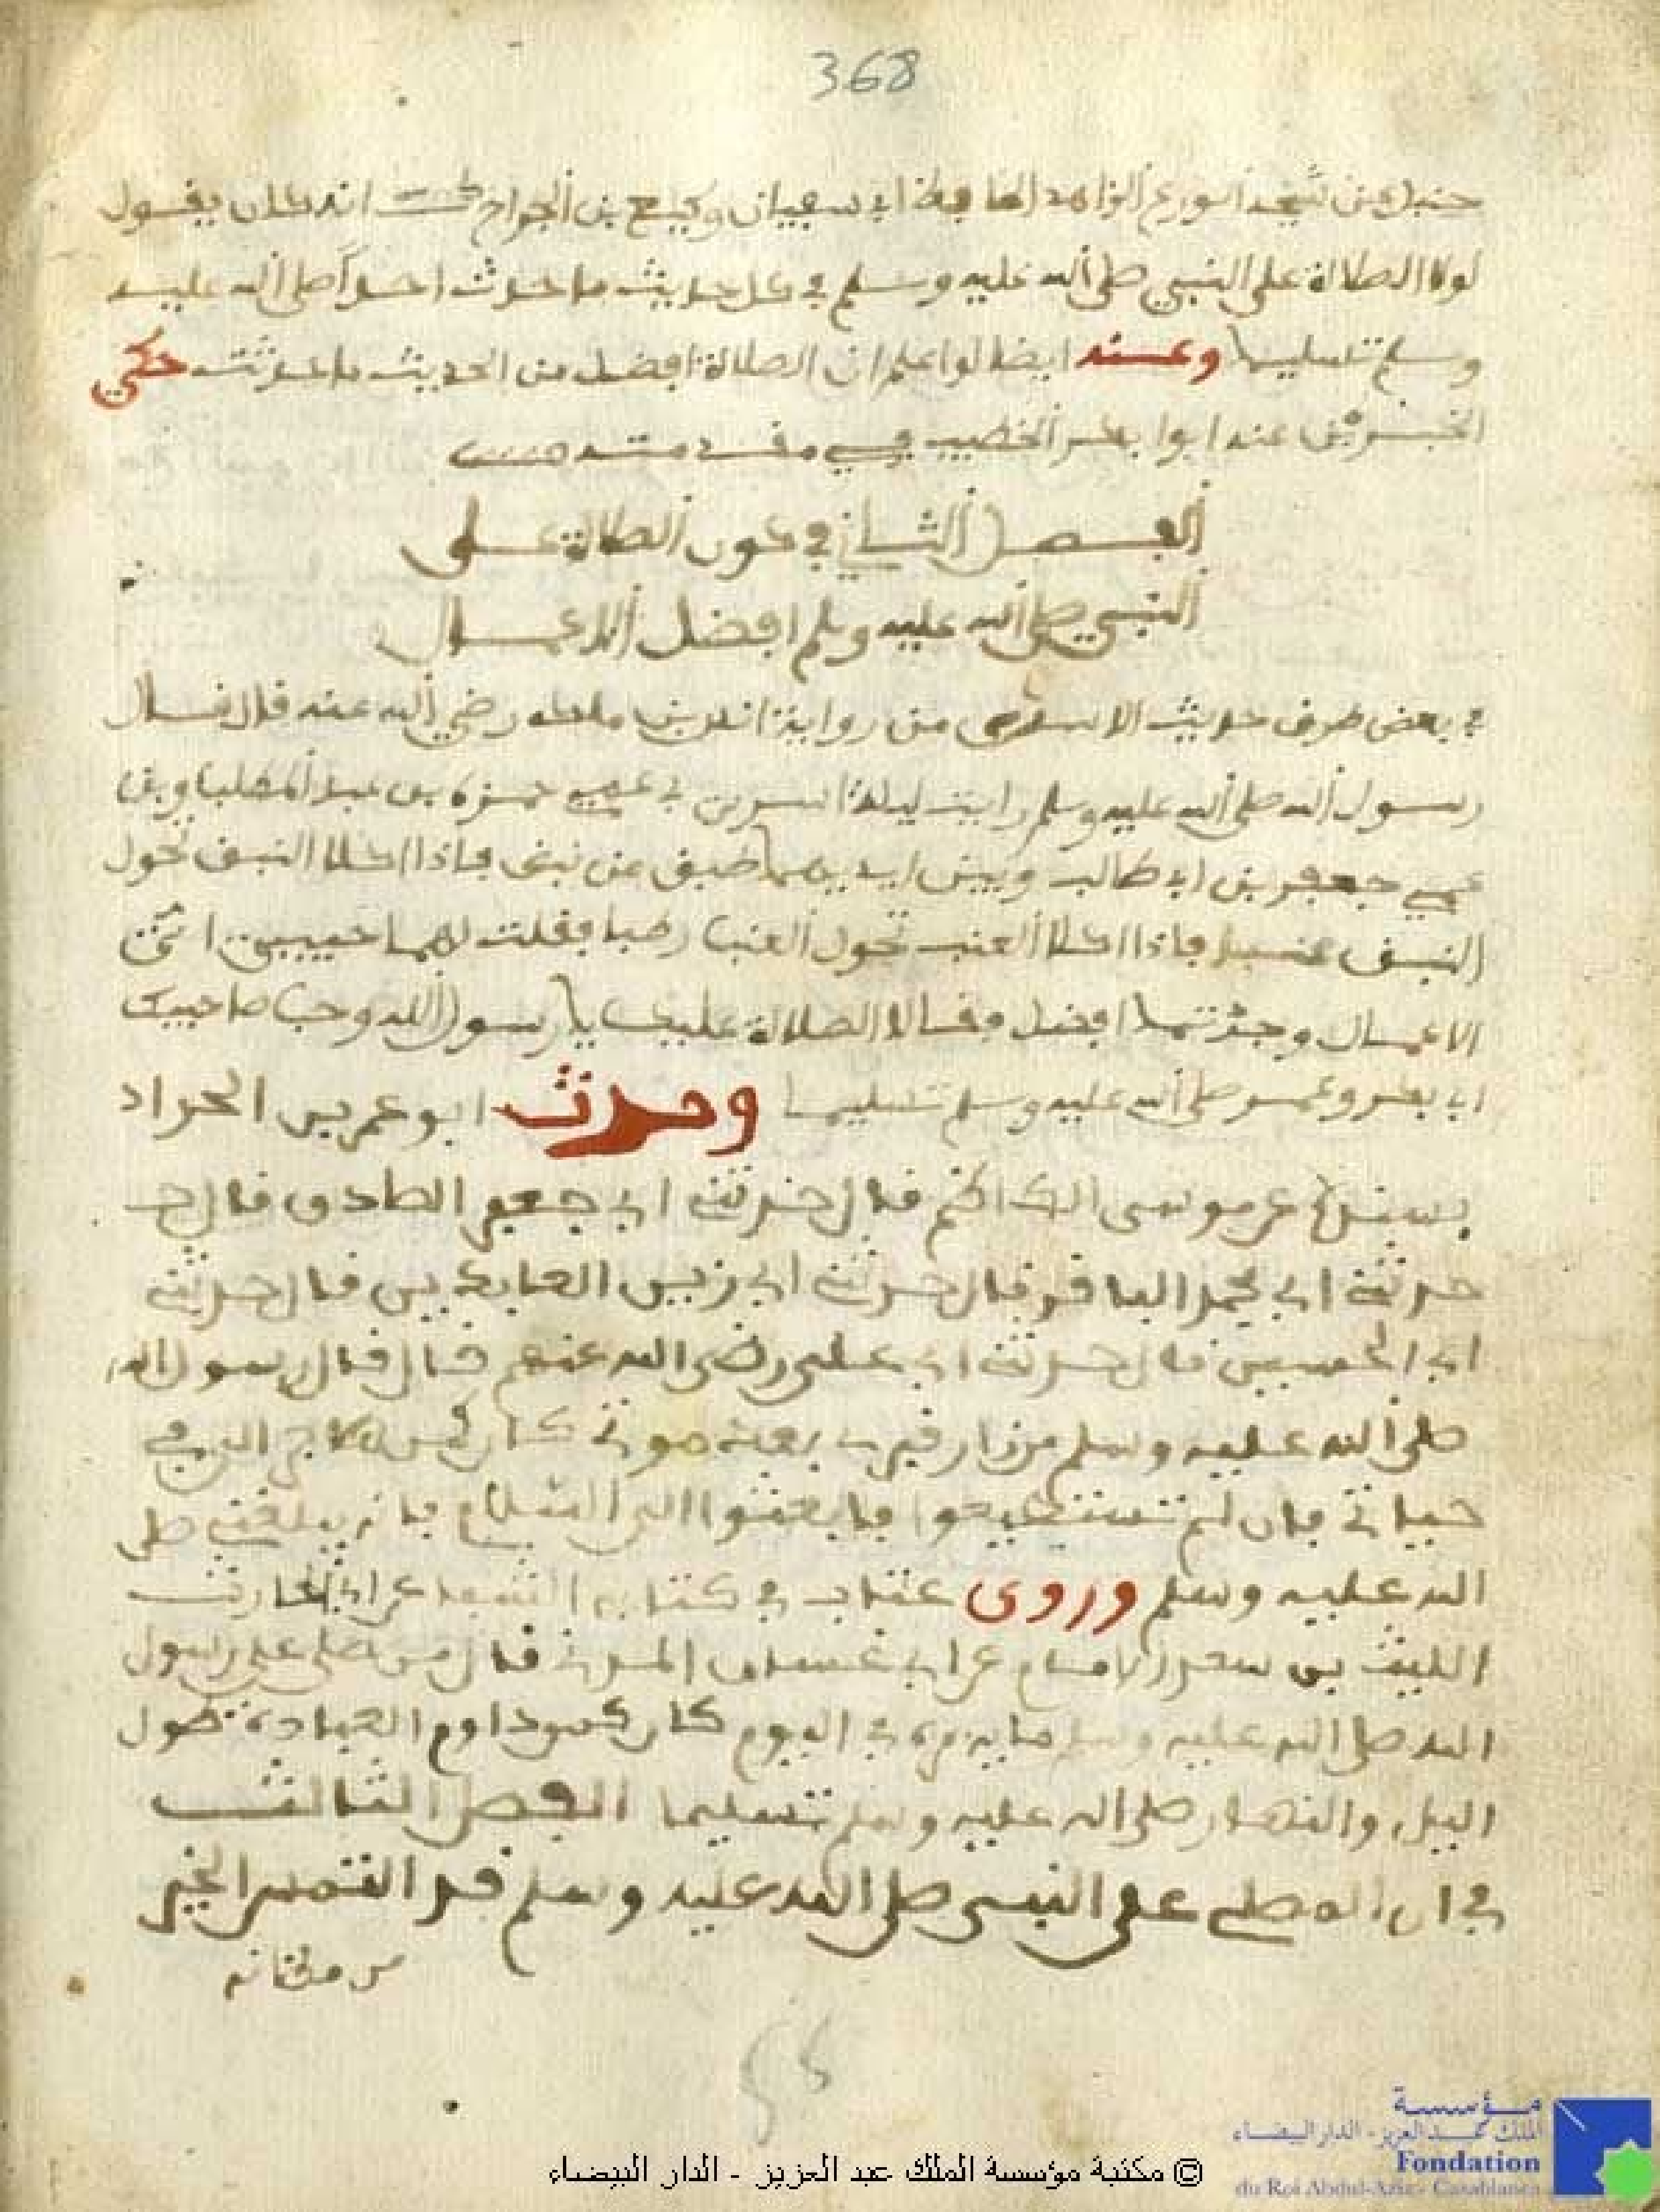 368
حنبل عن شيخه الورع الزاهد الحافظ ابي سفيان وكيع بن الجراح انه كان يقول
لولا الصلاة على النبي صلى الله عليه وسلم في كل حديث ما حدثت احدا صلى الله عليه
وسلم تسليما وعنه ايضا لو اعلم ان الصلاة افضل من الحديث ما حدثت حكى
الخبرين عنه ابوا بكر الخطيب في
الفصل الثاني في كون الصلاة على
النبي صلى الله عليه وسلم افضل الاعمال
في بعض طرق حديث الاسرى من رواية انس بن مالك رضي الله عنه قال قال
رسول الله صلى الله عليه وسلم رايت ليلة اسري بي عمي حمزة بن عبد المطلب وبن
عمي جعفر بن ابي طالب وبين ايديهما طبق من نبق فاذا اكلا النبق تحول
النبق عنبا فاذا اكلا العنب تحول العنب رطبا فقلت لهما حبيبي اي
الاعمال وجدتما افضل فقالا الصلاة عليك يا رسول الله وحب صاحبيك
ابي بكر وعمر صلى الله عليه وسلم تسليما وحدث ابو عمر بن الحداد
بسنده عن موسى الكاظم قال حدثني ابي جعفر الصادق قال حـ
حدثني ابي محمد الباقر قال حدثني ابي زين العابدين قال حدثني
ابي الحسين قال حدثني ابي علي رضي الله عنهم قال قال رسول الله
صلى الله عليه وسلم من زار قبري بعد موتي كان كمن هاجر الي في
حياتي فان لم تستطيعوا فابعثوا الي السلام فانه يبلغني صلى
الله عليه وسلم وروى عتاب في كتابه عن ابي الحارث
الليث بن سعد الامام عن ابي غسان المدني قال من صلى على رسول
الله صلى الله عليه وسلم ماية مرة في اليوم كان كمن داوم العبادة طول
اليل والنهار صلى الله عليه وسلم تسليما الفصل الثالث
في ان المصلي على النبي صلى الله عليه وسلم قد التمس الخير
من مظانه
© مكتبة مؤسسة الملك عبد العزيز - الدار البيضاء
مؤسسة
الملك عبد العزيز - الدار البيضاء
Fondation
du Roi Abdul-Aziz - Casablanca